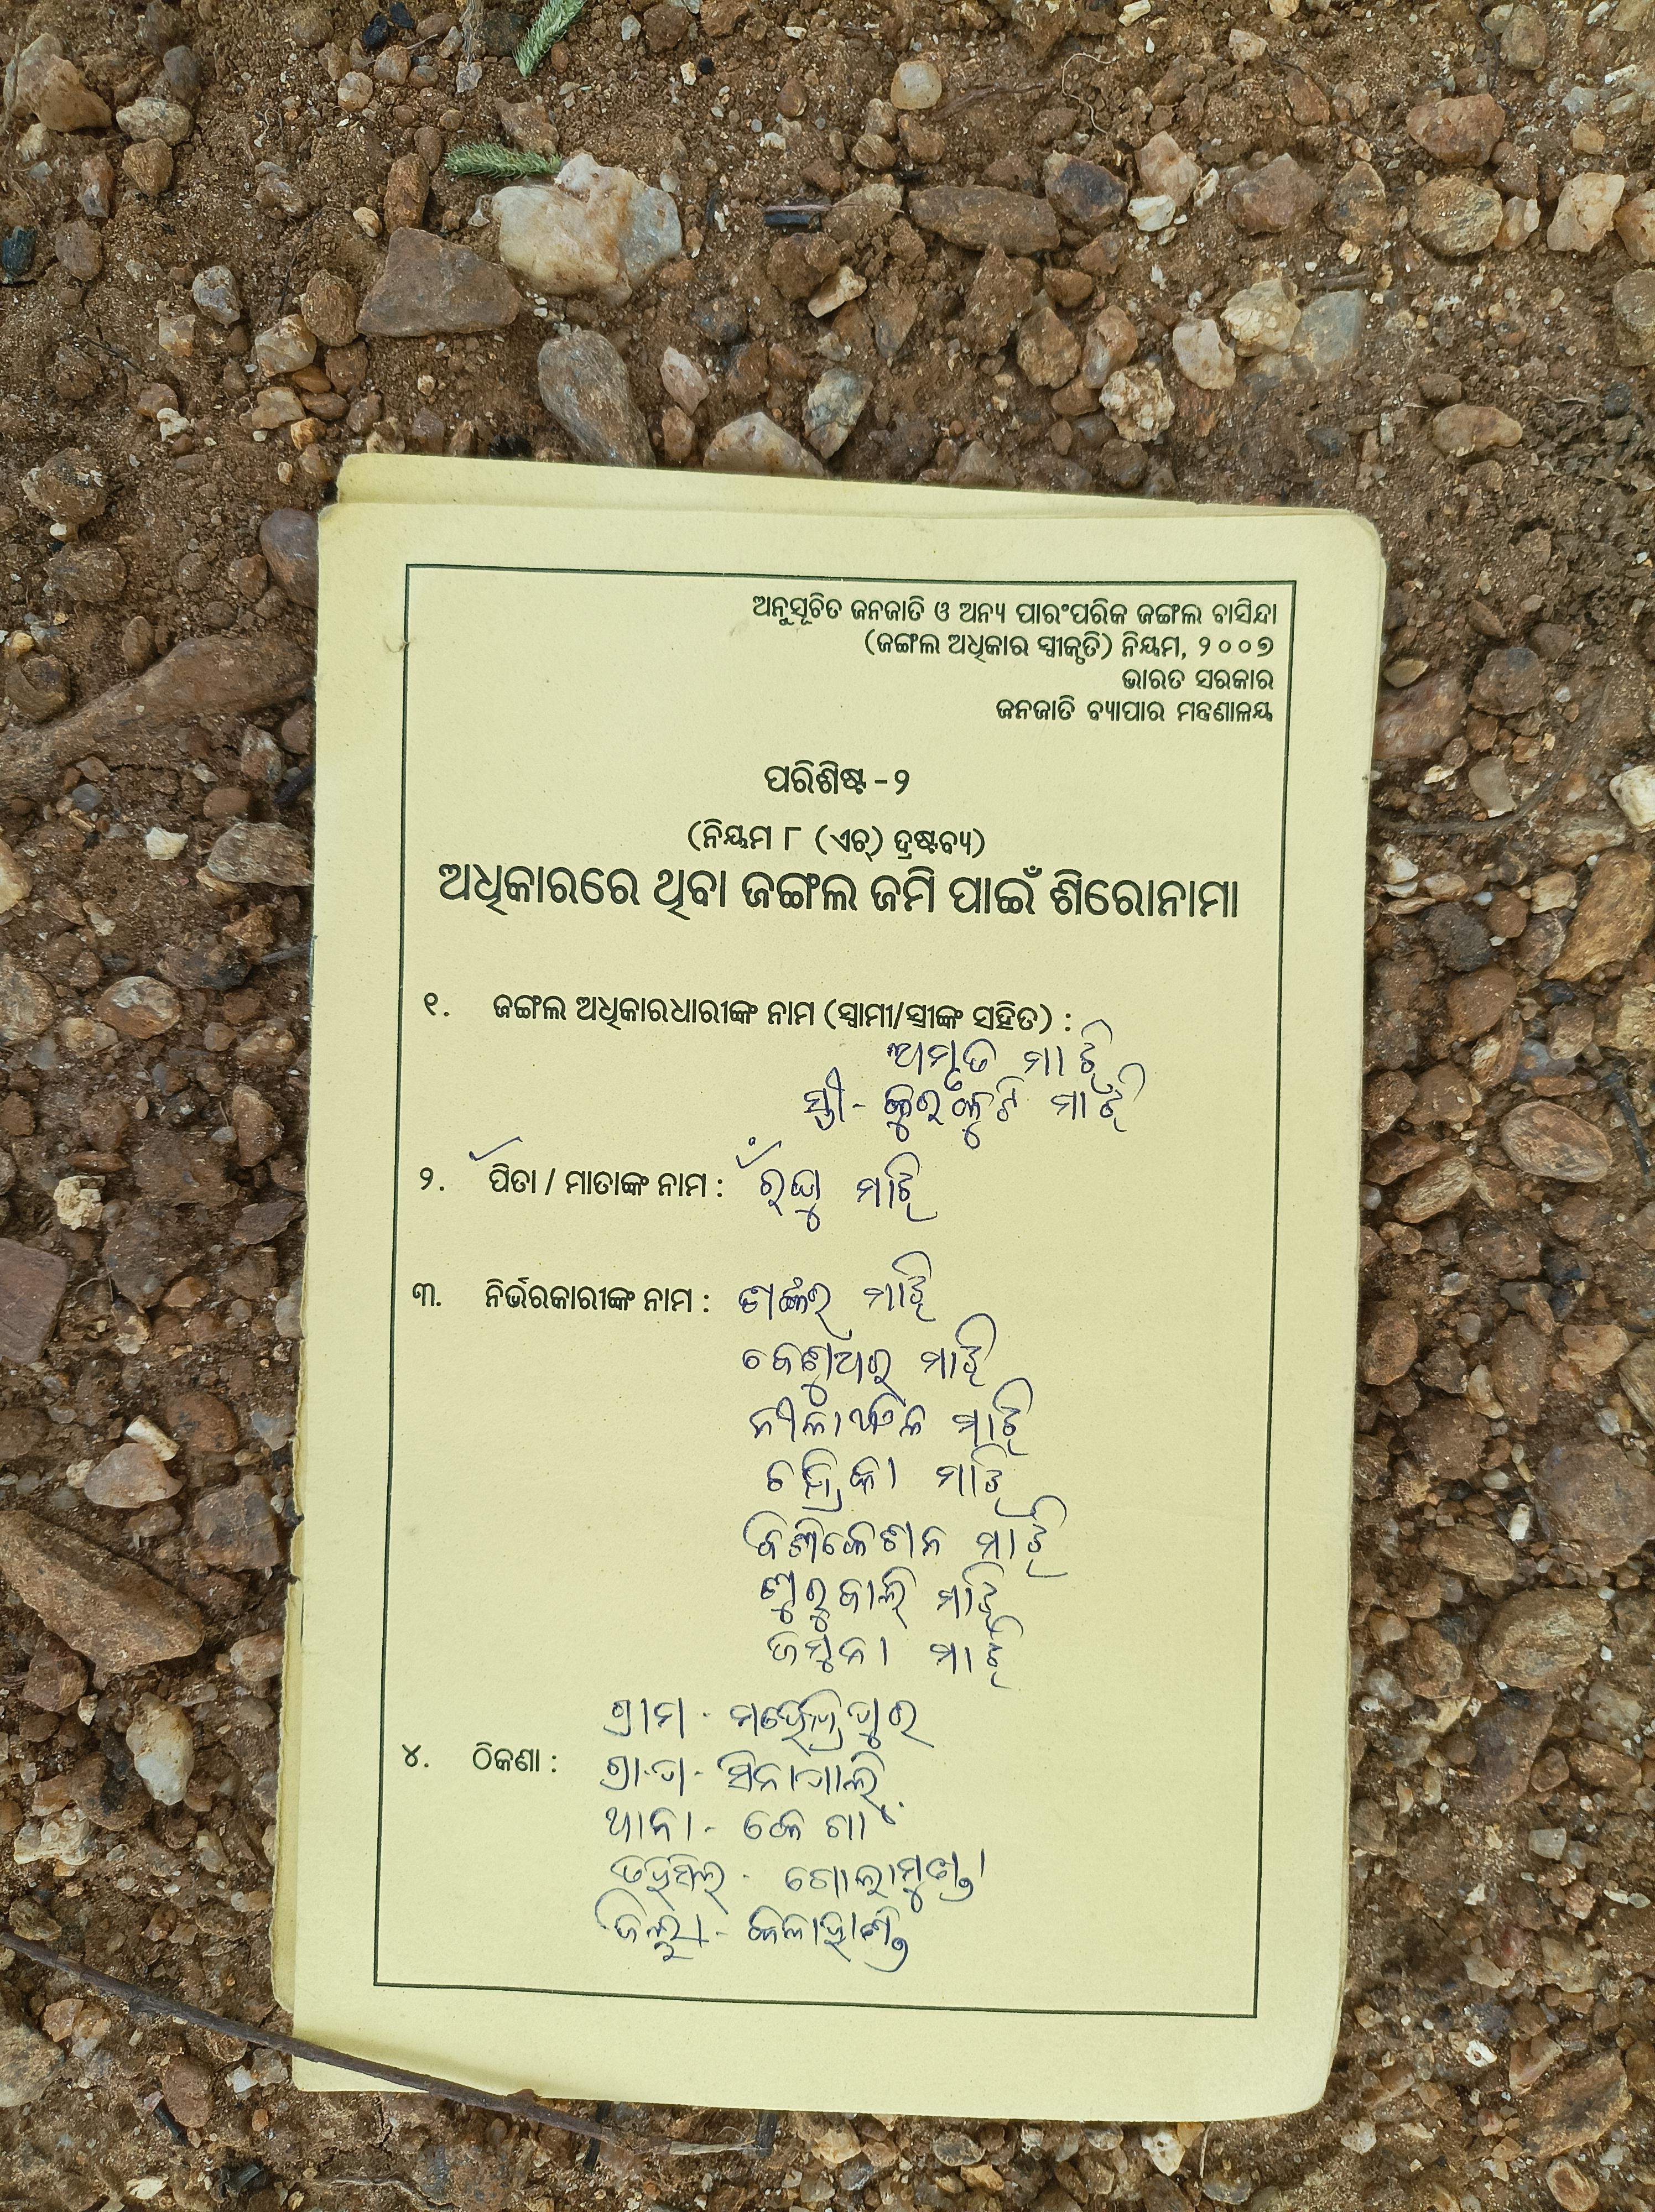 ଅନୁସୂଚିତ ଜନଜାତି ଓ ଅନ୍ୟ ପାରଂପରିକ ଜଙ୍ଗଲ ବାସିନ୍ଦା
(ଜଙ୍ଗଲ ଅଧିକାର ସ୍ୱୀକୃତି) ନିୟମ, ୨୦୦୭
ଭାରତ ସରକାର
ଜନଜାତି ବ୍ୟାପାର ମନ୍ତ୍ରଣାଳୟ
ପରିଶିଷ୍ଟ - ୨
(ନିୟମ ୮ (ଏଚ୍) ଦ୍ରଷ୍ଟବ୍ୟ)
ଅଧିକାରରେ ଥିବା ଜଙ୍ଗଲ ଜମି ପାଇଁ ଶିରୋନାମା
୧. ଜଙ୍ଗଲ ଅଧିକାରଧାରୀଙ୍କ ନାମ (ସ୍ୱାମୀ/ସ୍ତ୍ରୀଙ୍କ ସହିତ) :
ଅମୃତ ମାଝି
ସ୍ତ୍ରୀ - କୁରକୁଟି ମାଝି
୨. ପିତା / ମାତାଙ୍କ ନାମ : ରଘୁ ମାଝି
୩. ନିର୍ଭରକାରୀଙ୍କ ନାମ : ଶଙ୍କର ମାଝି
ମାଝି
ନୀଳାଞ୍ଚଳ ମାଝି
ଚନ୍ଦ୍ରିକା ମାଝି
ମାଝି
ମାଝି
ଜମୁନା ମାଝି
ଗ୍ରାମ - ମହେନ୍ଦ୍ରପୁର
୪. ଠିକଣା : ଗ୍ରା.ପ - ସିନାପାଲି
ଥାନା - କେଗାଁ
ତହସିଲ - ଗୋଲାମୁଣ୍ଡା
ଜିଲ୍ଲା - କଳାହାଣ୍ଡି